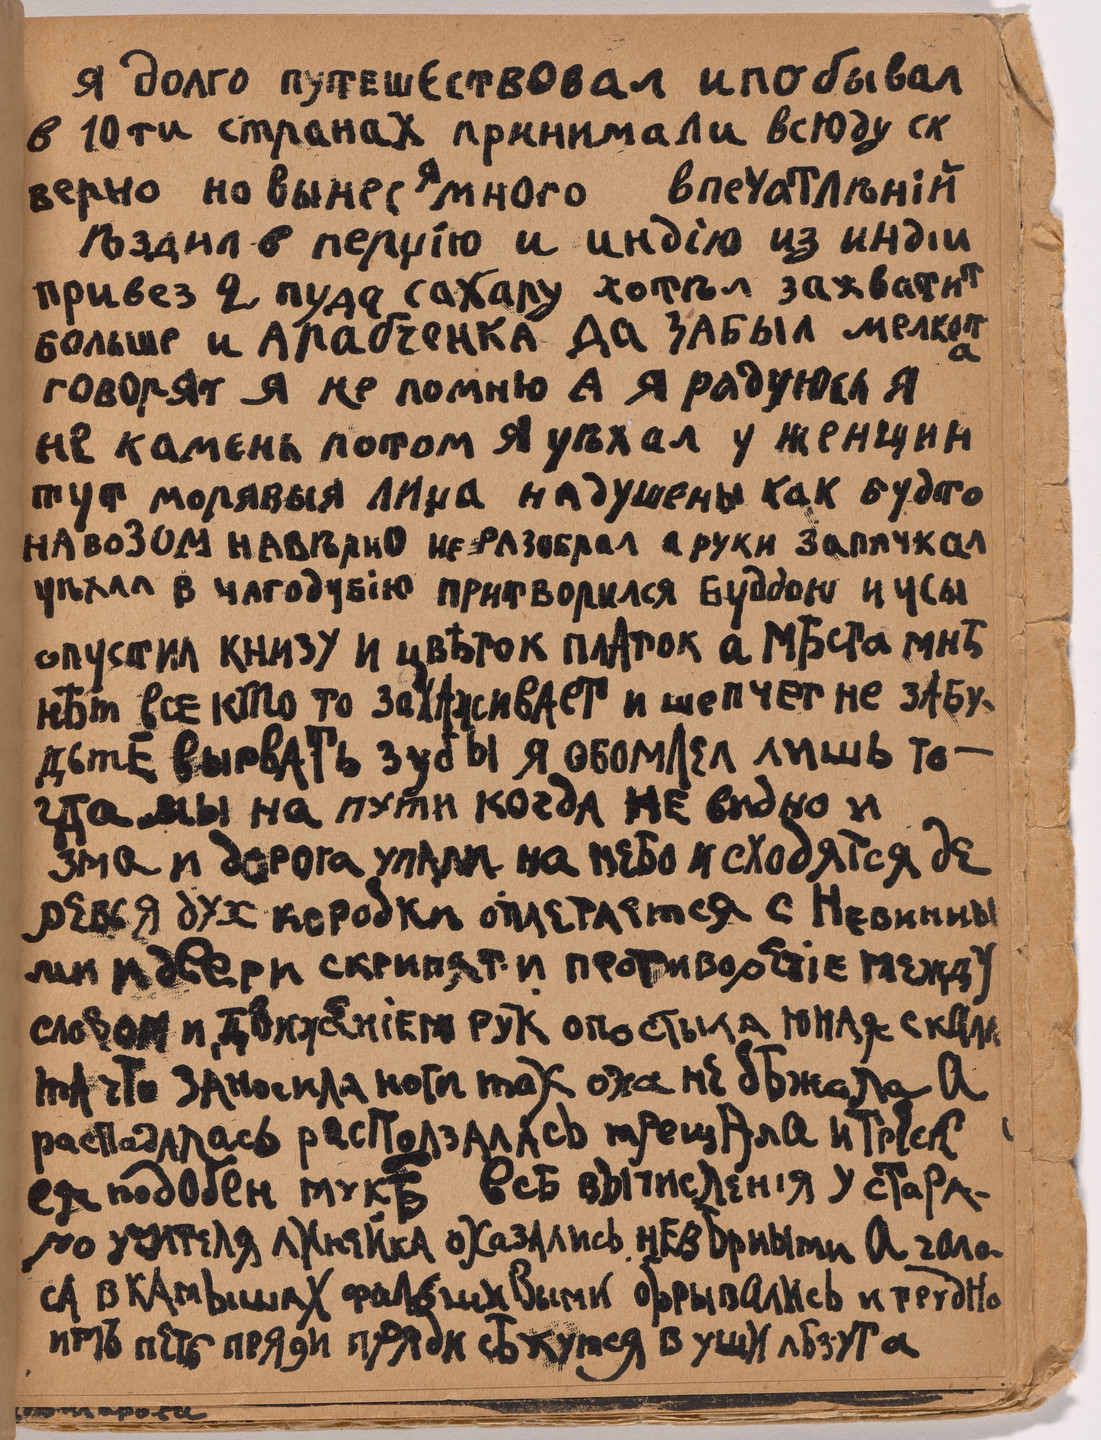 я долго путешествовал и побывал
в 10ти странах принимали всюду ск
верно но вынес я много впечатлѣнiй
ѣздил в перцiю и индiю из индiи
привез 2 пуда сахару хотѣл захватит
больше и Арабченка да забыл мелкота
говорят я не помню а я радуюсь я
не камень потом я уѣхал у женщин
тут морявыя лица надушены как будто
навозом навѣрно не разобрал а руки запачкал
уѣхал в чагодубiю притворился Буддою и усы
опустил книзу и цвѣток платок а мѣста мнѣ
нѣт все кто то захаживает и шепчет не забу-
дьте вырвать зубы я обомлел лишь то—
гда мы на пути когда не видно и
зма и дорога упали на небо и сходятся де
ревья дух коробки оплетается с невинны
ми и двери скрипят и противоречiе между
словом и движенiем рук опостыла юная скала
та что заносила ноги так она не бѣжала а
распадалась расползалась трещала и треск
ея подобен мукѣ всѣ вычисленiя у стара-
го учителя линейка оказались невѣрными а голо-
са в камышах фальшивыми обрывались и трудно
имъ петь пряди пряди сѣкутся в уши лѣзута